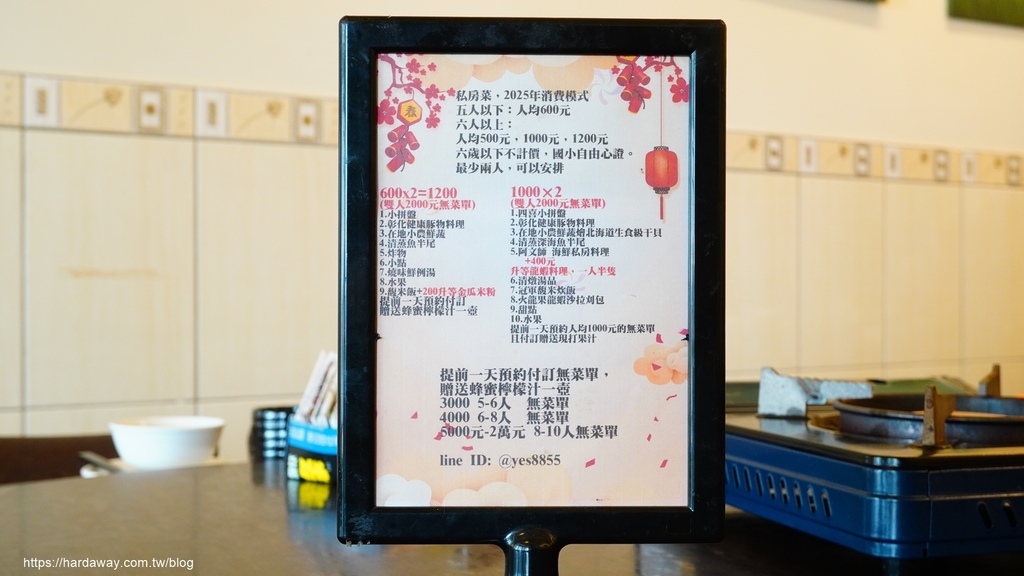 春
私房菜，2025年消費模式
五人以下：人均600元
六人以上：
人均500元，1000元，1200元
六歲以下不計價，國小自由心證。
最少兩人，可以安排
600x2=1200
(雙人2000元無菜單)
1.小拼盤
2.彰化健康豚物料理
3.在地小農鮮蔬
4.清蒸魚半尾
5.炸物
6.小點
7.燒味鮮例湯
8.水果
9.馥米飯+200升等金瓜米粉
提前一天預約付訂
贈送蜂蜜檸檬汁一壺
1000×2
(雙人2000元無菜單)
1.四喜小拼盤
2.彰化健康豚物料理
3.在地小農鮮蔬燴北海道生食級干貝
4.清蒸深海魚半尾
5.阿文師 海鮮私房料理
+400元
升等龍蝦料理，一人半隻
6.清燉湯品
7.冠軍馥米炊飯
8.火龍果龍蝦沙拉刈包
9.甜點
10.水果
提前一天預約人均1000元的無菜單
且付訂贈送現打果汁
提前一天預約付訂無菜單，
贈送蜂蜜檸檬汁一壺
3000 5-6人 無菜單
4000 6-8人 無菜單
5000元-2萬元 8-10人無菜單
line ID: @yes8855
https://hardaway.com.tw/blog